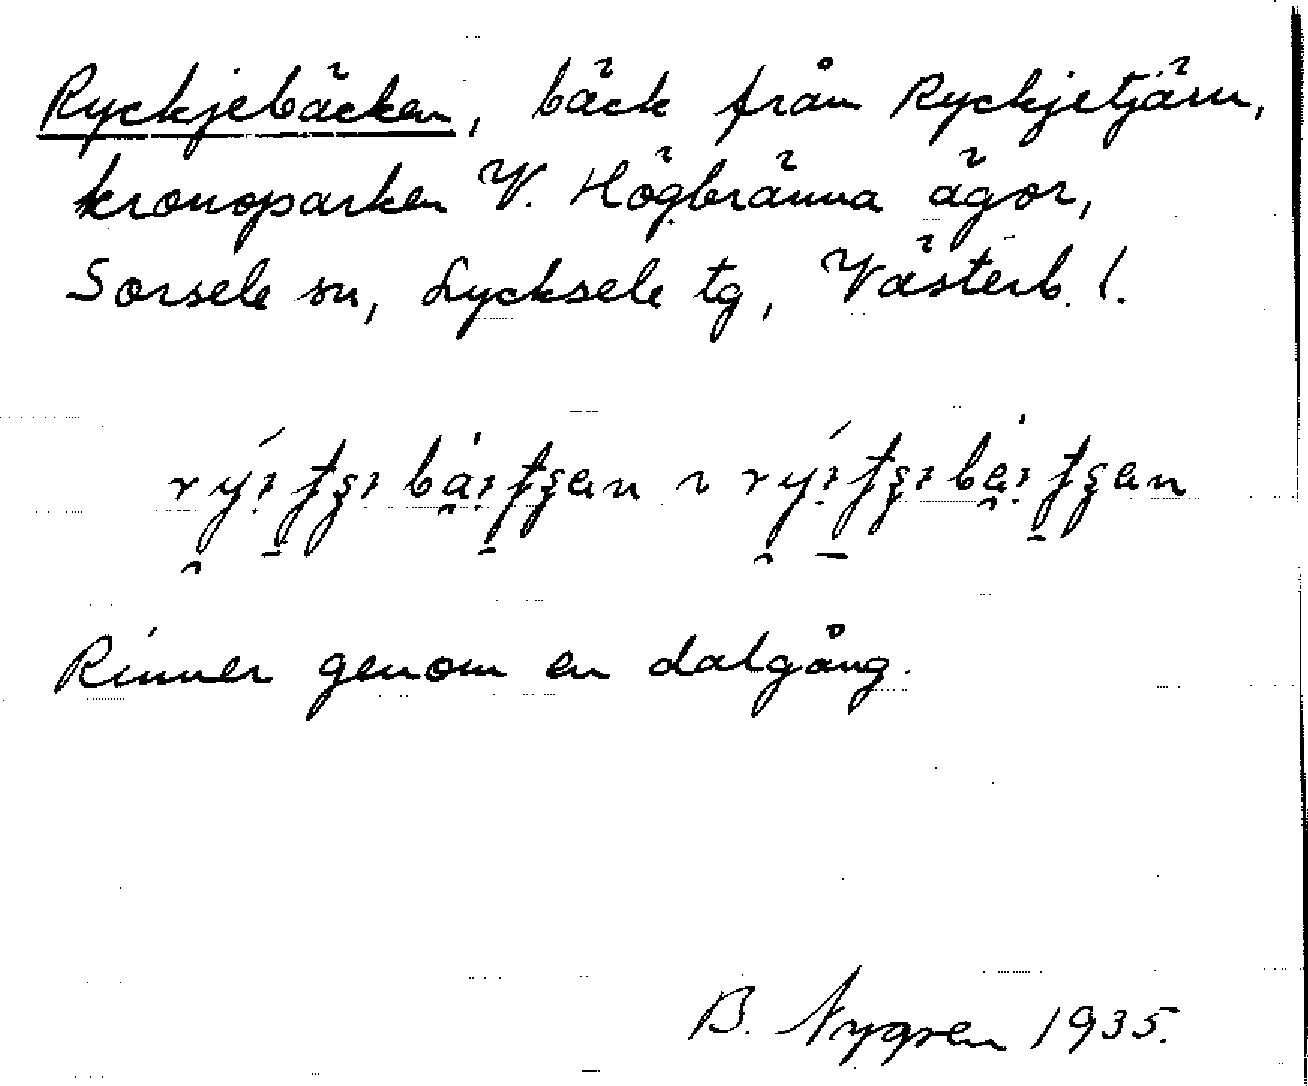 Ryckjebäcken, bäck från Ryckjetjärn,
kronoparken V. Högbränna ägor,
Sorsele sn, Lycksele tg, Västerb. l.
Rinner genom en dalgång.
B. Nygren 1935.